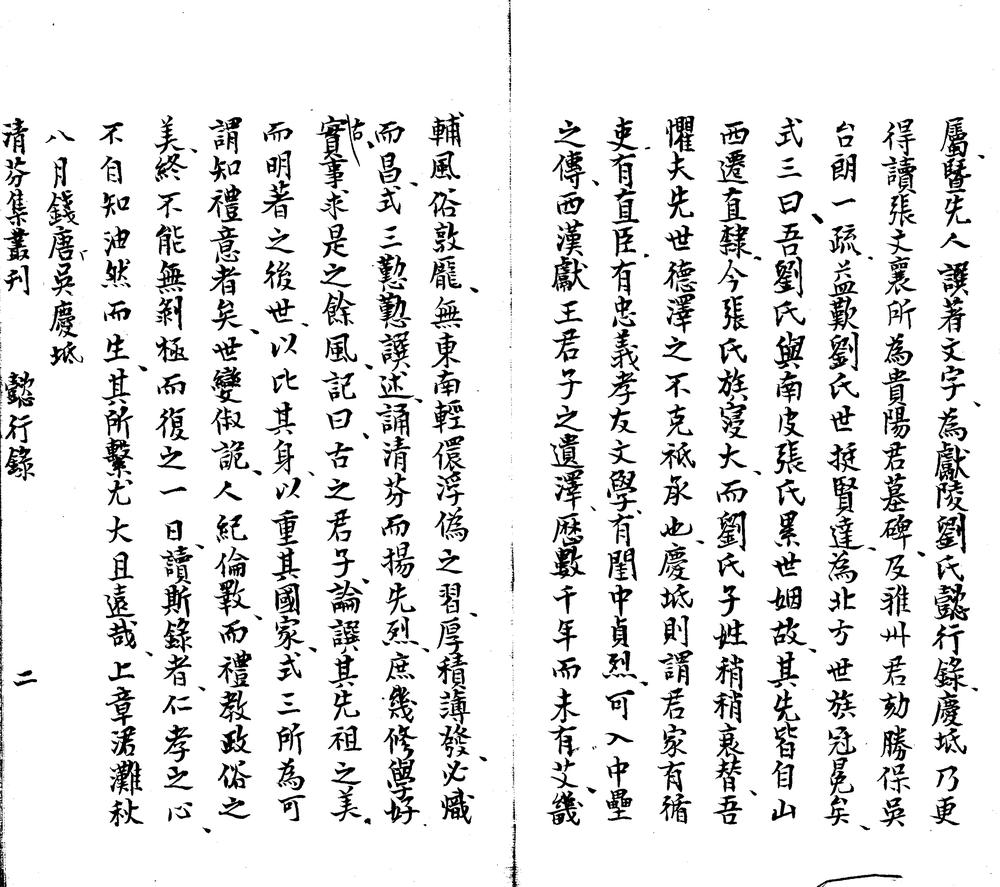 屬暨先人譔著文字為獻陵劉氏懿行錄慶坻乃更
得讀張文襄所為貴陽君墓碑及雅州君劾勝保吳
台朗一疏益歎劉氏世挺賢達為北方世族冠冕矣
式三曰吾劉氏與南皮張氏累世姻故其先皆自山
西遷直隸今張氏族寖大而劉氏子姓稍稍衰替吾
懼夫先世德澤之不克祗承也慶坻則謂君家有循
吏有直臣有忠義孝友文學有閨中貞烈可入中壘
之傳西漢獻王君子之遺澤歷數千年而未有艾幾
輔風俗敦龐無東南輕儇浮偽之習厚積薄發必熾
而昌式三懃懃譔述誦清芬而揚先烈庶幾修學好
古
實事求是之餘風記曰古之君子論譔其先祖之美
而明著之後世以比其身以重其國家式三所為可
謂知禮意者矣世變俶詭人紀倫斁而禮教政俗之
美終不能無剝極而復之一日讀斯錄者仁孝之心
不自知油然而生其所繫尤大且遠哉上章涒灘秋
八月錢唐吳慶坻
清芬集叢刊 懿行錄 二